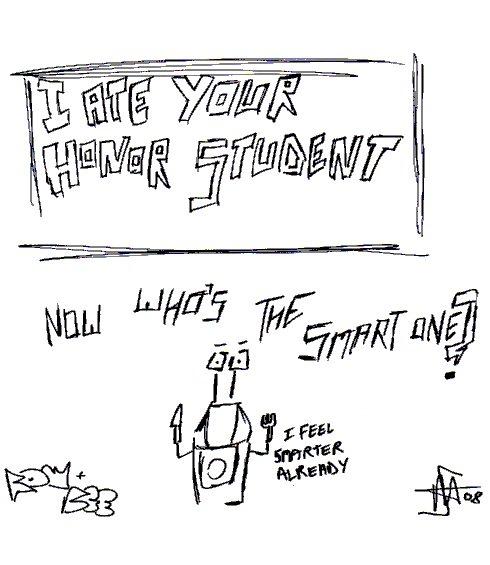 I ATE YOUR
HONOR STUDENT
NOW WHO'S THE SMART ONE?
I FEEL
SMARTER
ALREADY
+
BEE
08